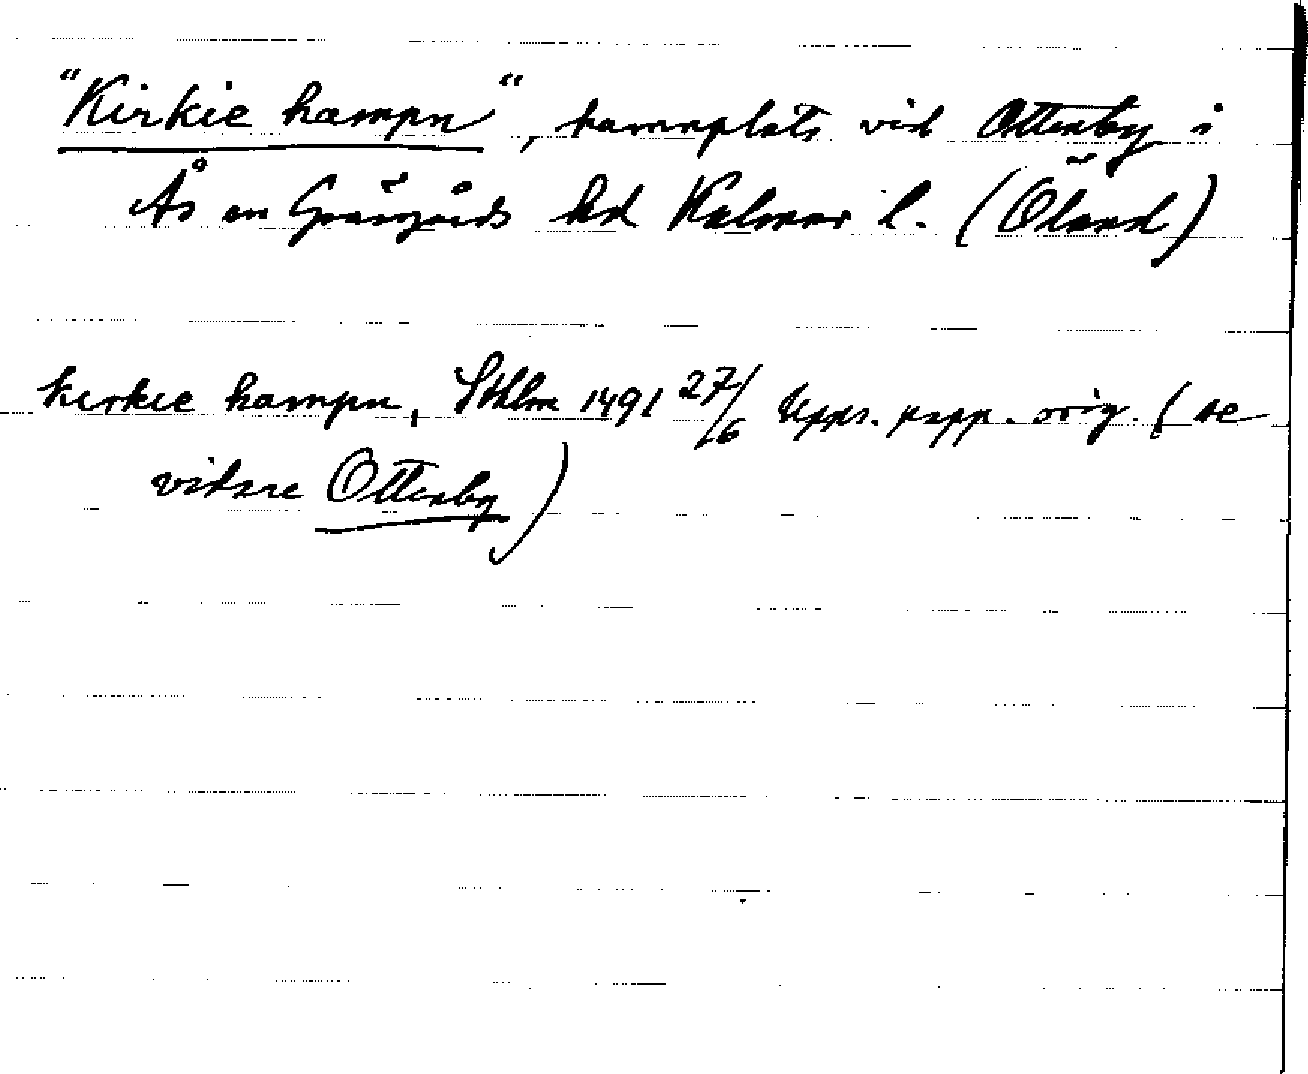 "Kirkie hampn", hamnplats vid Ottenby i
Ås sn Gräsgårds hd Kalmar l. (Öland)
kirkie hampn, Sthlm 1491 27/6 Upps. papp. orig. (se
vidare Ottenby)